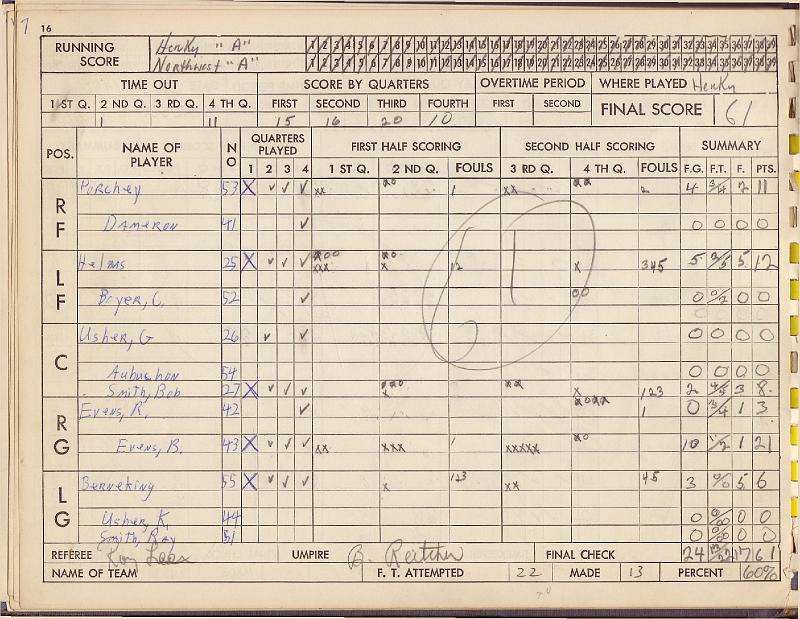 7
16
RUNNING SCORE Henky "A" 1 2 3 4 5 6 7 8 9 10 11 12 13 14 15 16 17 18 19 20 21 22 23 24 25 26 27 28 29 30 31 32 33 34 35 36 37 38 39
Northwest "A" 1 2 3 4 5 6 7 8 9 10 11 12 13 14 15 16 17 18 19 20 21 22 23 24 25 26 27 28 29 30 31 32 33 34 35 36 37 38 39
TIME OUT SCORE BY QUARTERS OVERTIME PERIOD WHERE PLAYED Henky
1 ST Q. 2 ND Q. 3 RD Q. 4 TH Q. FIRST SECOND THIRD FOURTH FIRST SECOND FINAL SCORE 61
1 11 15 16 20 10
POS. NAME OF PLAYER NO QUARTERS PLAYED FIRST HALF SCORING SECOND HALF SCORING SUMMARY
1 2 3 4 1 ST Q. 2 ND Q. FOULS 3 RD Q. 4 TH Q. FOULS F.G. F.T. F. PTS.
RF Porchey 53 X ✓ ✓ ✓ xx 1 xx 2 4 3/4 2 11
Dameron 41 ✓ 0 0 0 0
LF Helms 25 X ✓ ✓ ✓ xxx x 12 x 345 5 2/5 5 12
Boyer, C. 52 ✓ 00 0 0/2 0 0
C Usher, G 26 ✓ ✓ 0 0 0 0
61
Aubuchon 54 0 0 0 0
Smith, Bob 27 X ✓ ✓ ✓ x xx x 123 2 4/5 3 8
RG Evens, R. 42 ✓ 1 0 3/4 1 3
Evens, B. 43 X ✓ ✓ ✓ xx xxx 1 xxxxx 10 1/2 1 21
LG Berneking 55 X ✓ ✓ ✓ x 123 xx 45 3 0/0 5 6
Usher, K. 44 0 0/0 0 0
Smith, Ray 51 0 0/0 0 0
REFEREE UMPIRE B. FINAL CHECK 24 13/22 17 61
NAME OF TEAM F. T. ATTEMPTED 22 MADE 13 PERCENT 60%